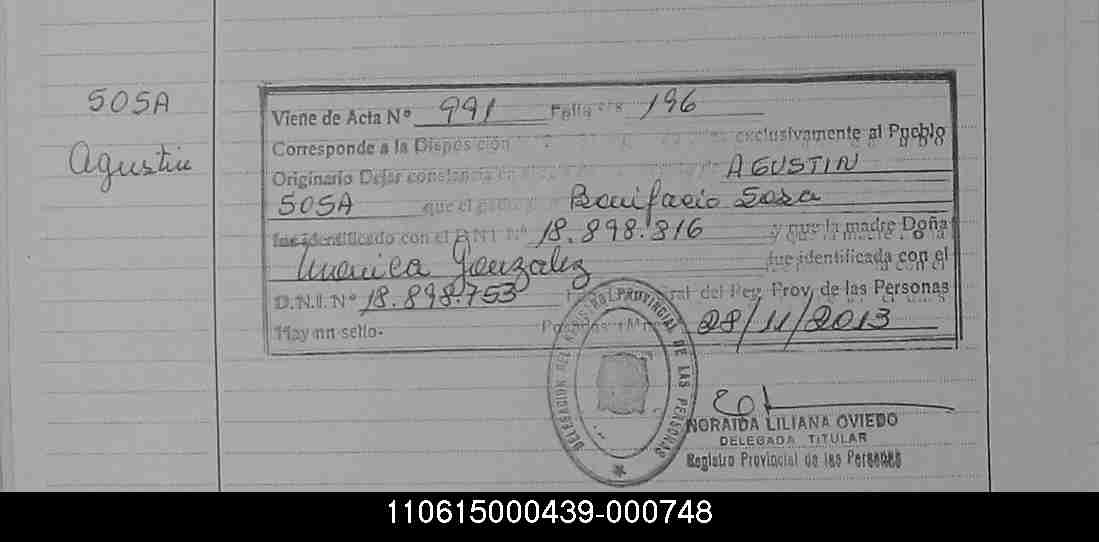 SOSA
Agustin
Viene de Acta Nº 991 Folio 196
Corresponde a la Disposición exclusivamente al Pueblo
Originario Dejar constancia en AGUSTIN
SOSA que el padre Bonifacio Sosa
fue identificado con el D.N.I. Nº 18.898.816 y que la madre Doña
Monica Gonzalez fue identificada con el
D.N.I. Nº 18.898.753 del Reg. Prov. de las Personas
Hay un sello. Posadas 28/11/2013
DELEGACION DEL REGISTRO PROVINCIAL DE LAS PERSONAS
NORAIDA LILIANA OVIEDO
DELEGADA TITULAR
Registro Provincial de las Personas
110615000439-000748